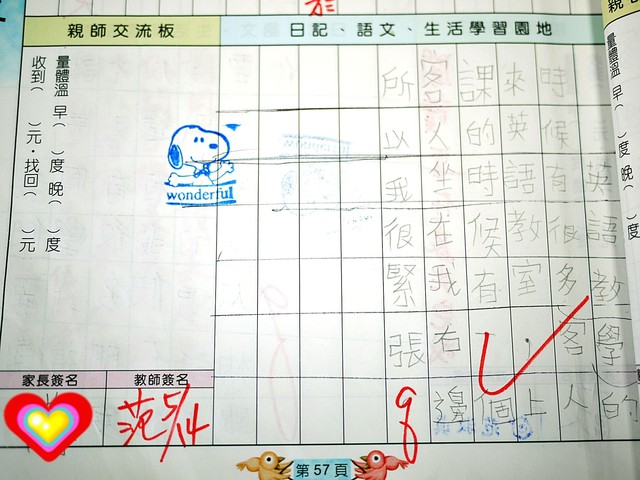 親師交流板
日記、語文、生活學習園地
英語教學的
時候有很多客人
來英語教室,上
課的時候有一個
客人坐在我右邊
所以我很緊張
wonderful
量體溫 早( )度 晚( )度
收到( )元·找回( )元
家長簽名
教師簽名
范 5/14
9
第57頁